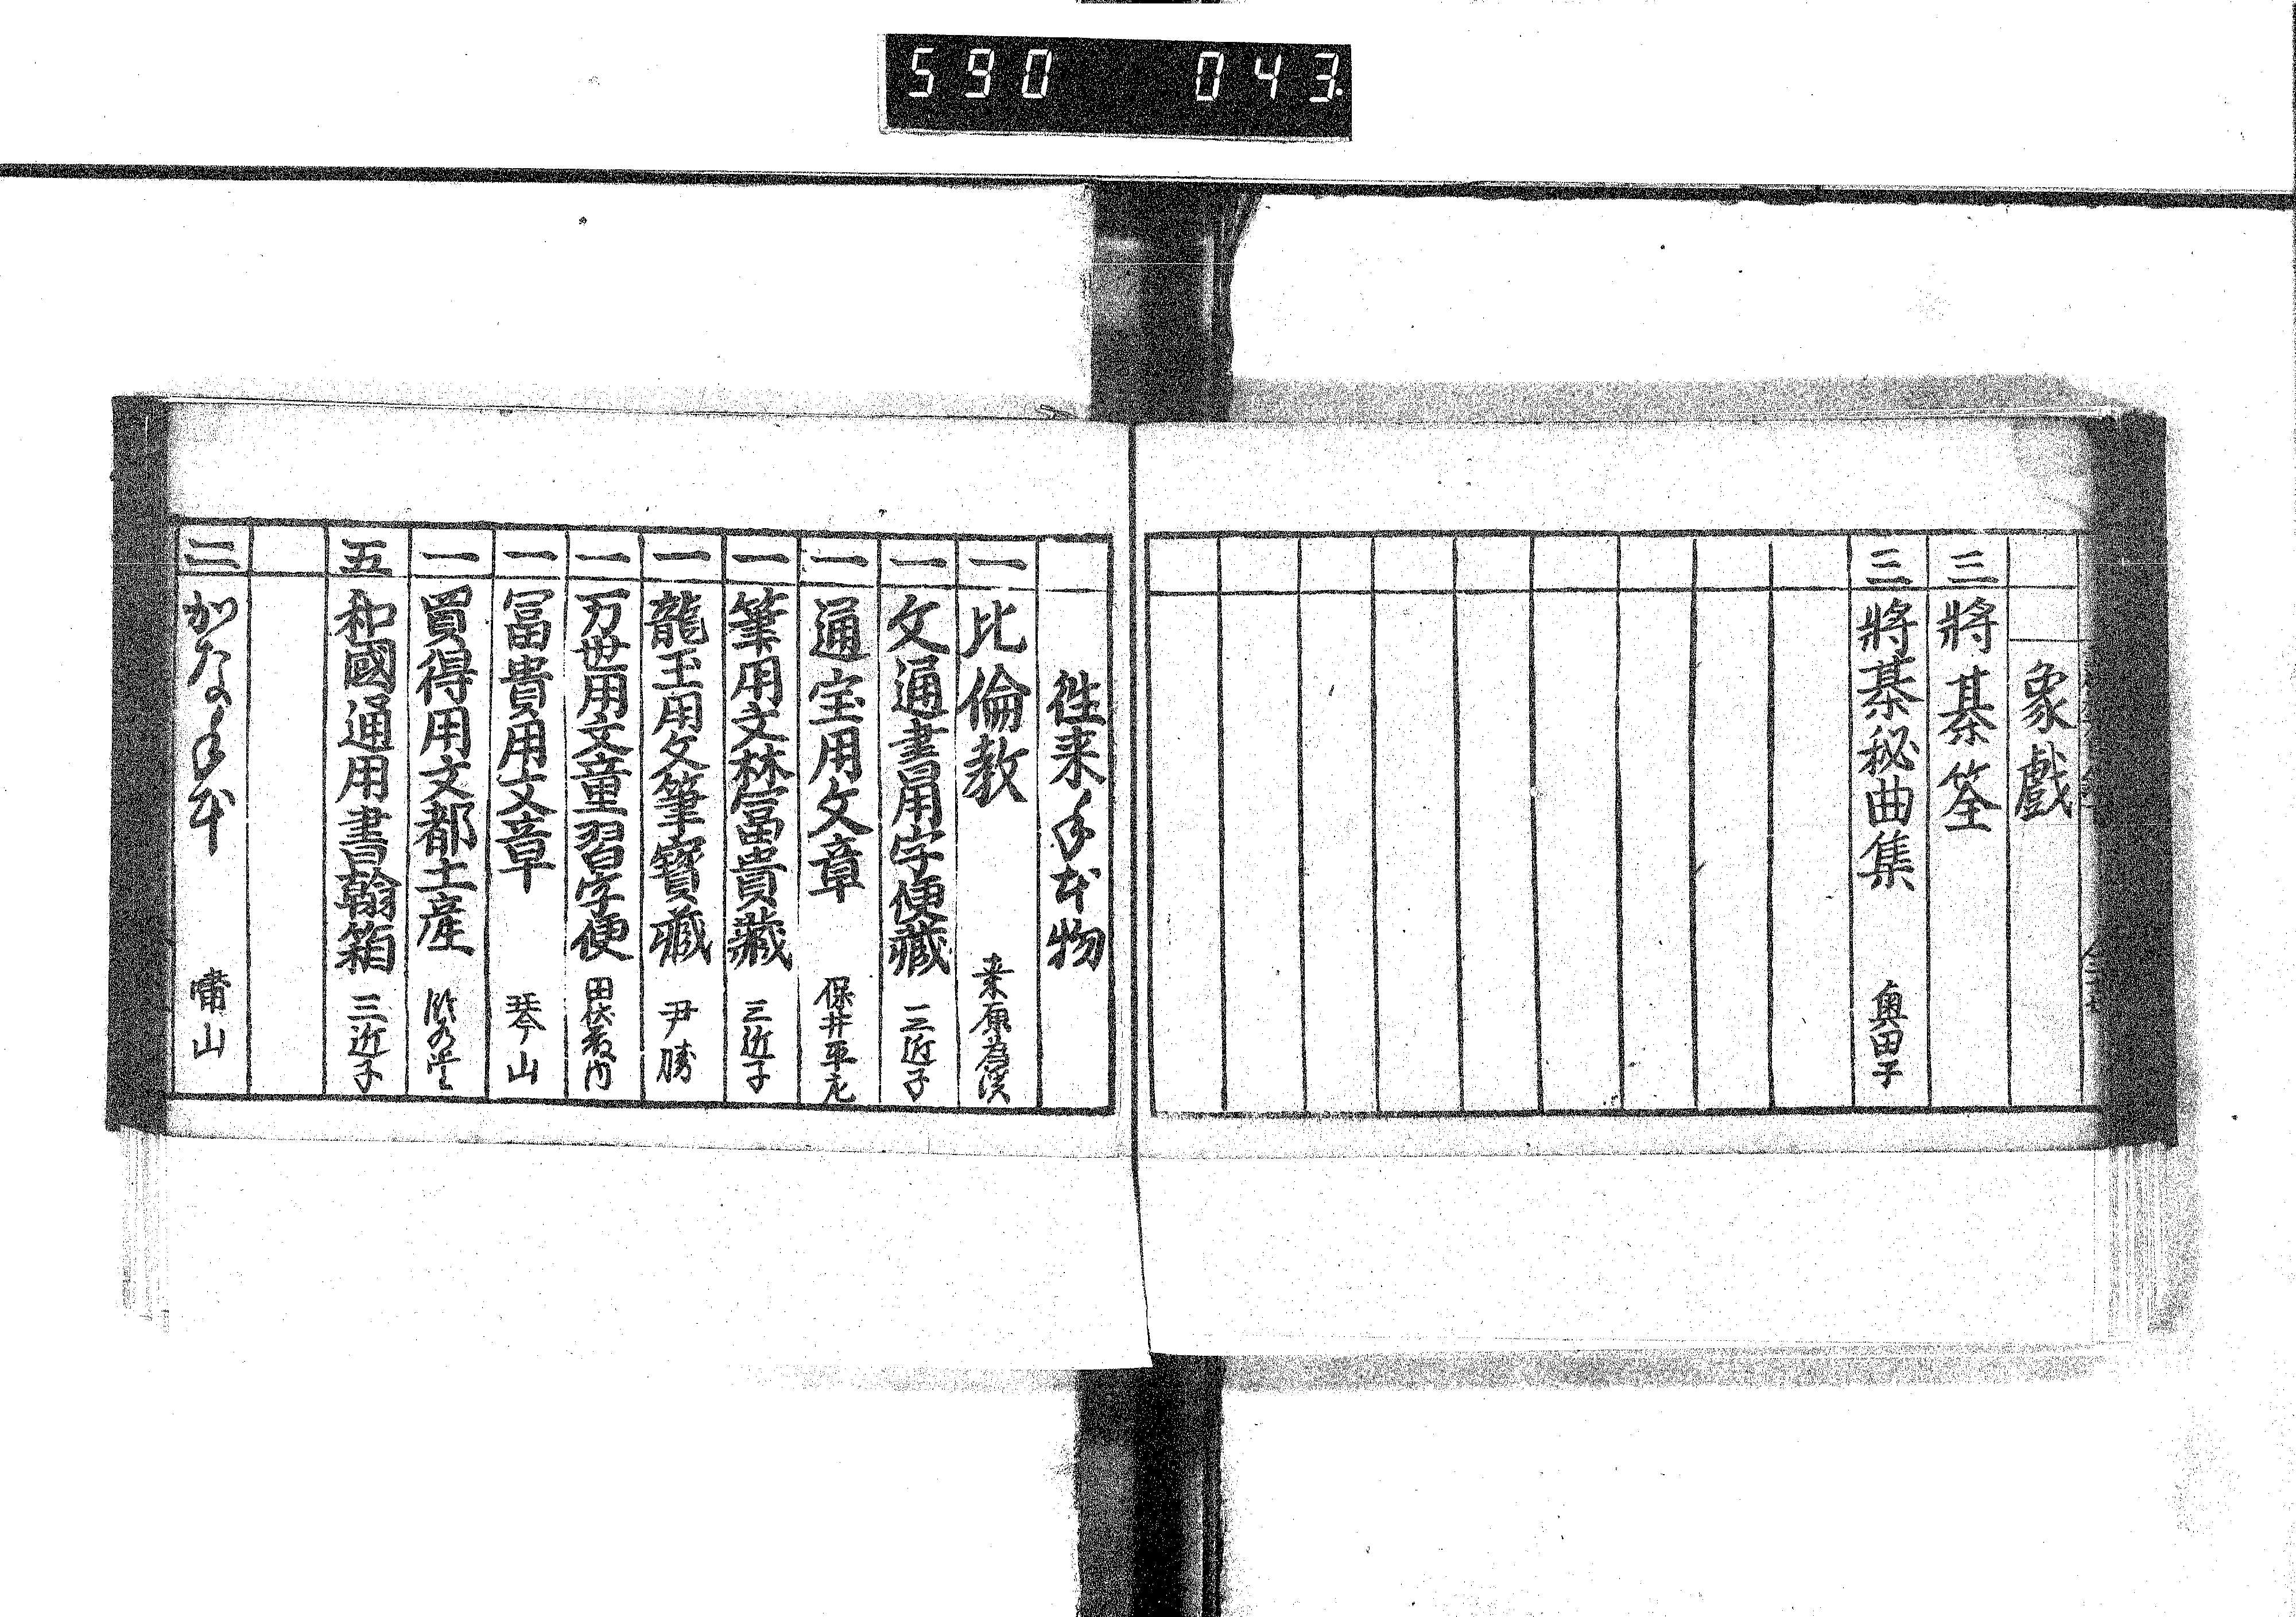 590 043
象戲
三 將棊筌
三 將棊秘曲集 奥田子
往来手本物
一 比倫教
一 文通書用字便藏 三近子
一 通宝用文章 保井平
一 筆用文林冨貴藏 三近子
一 龍玉用文筆寶藏 尹勝
一 万世用文童習字便
一 冨貴用文章 琴山
一 買得用文都土産
五 和國通用書翰箱 三近子
三 かな手本 嘯山